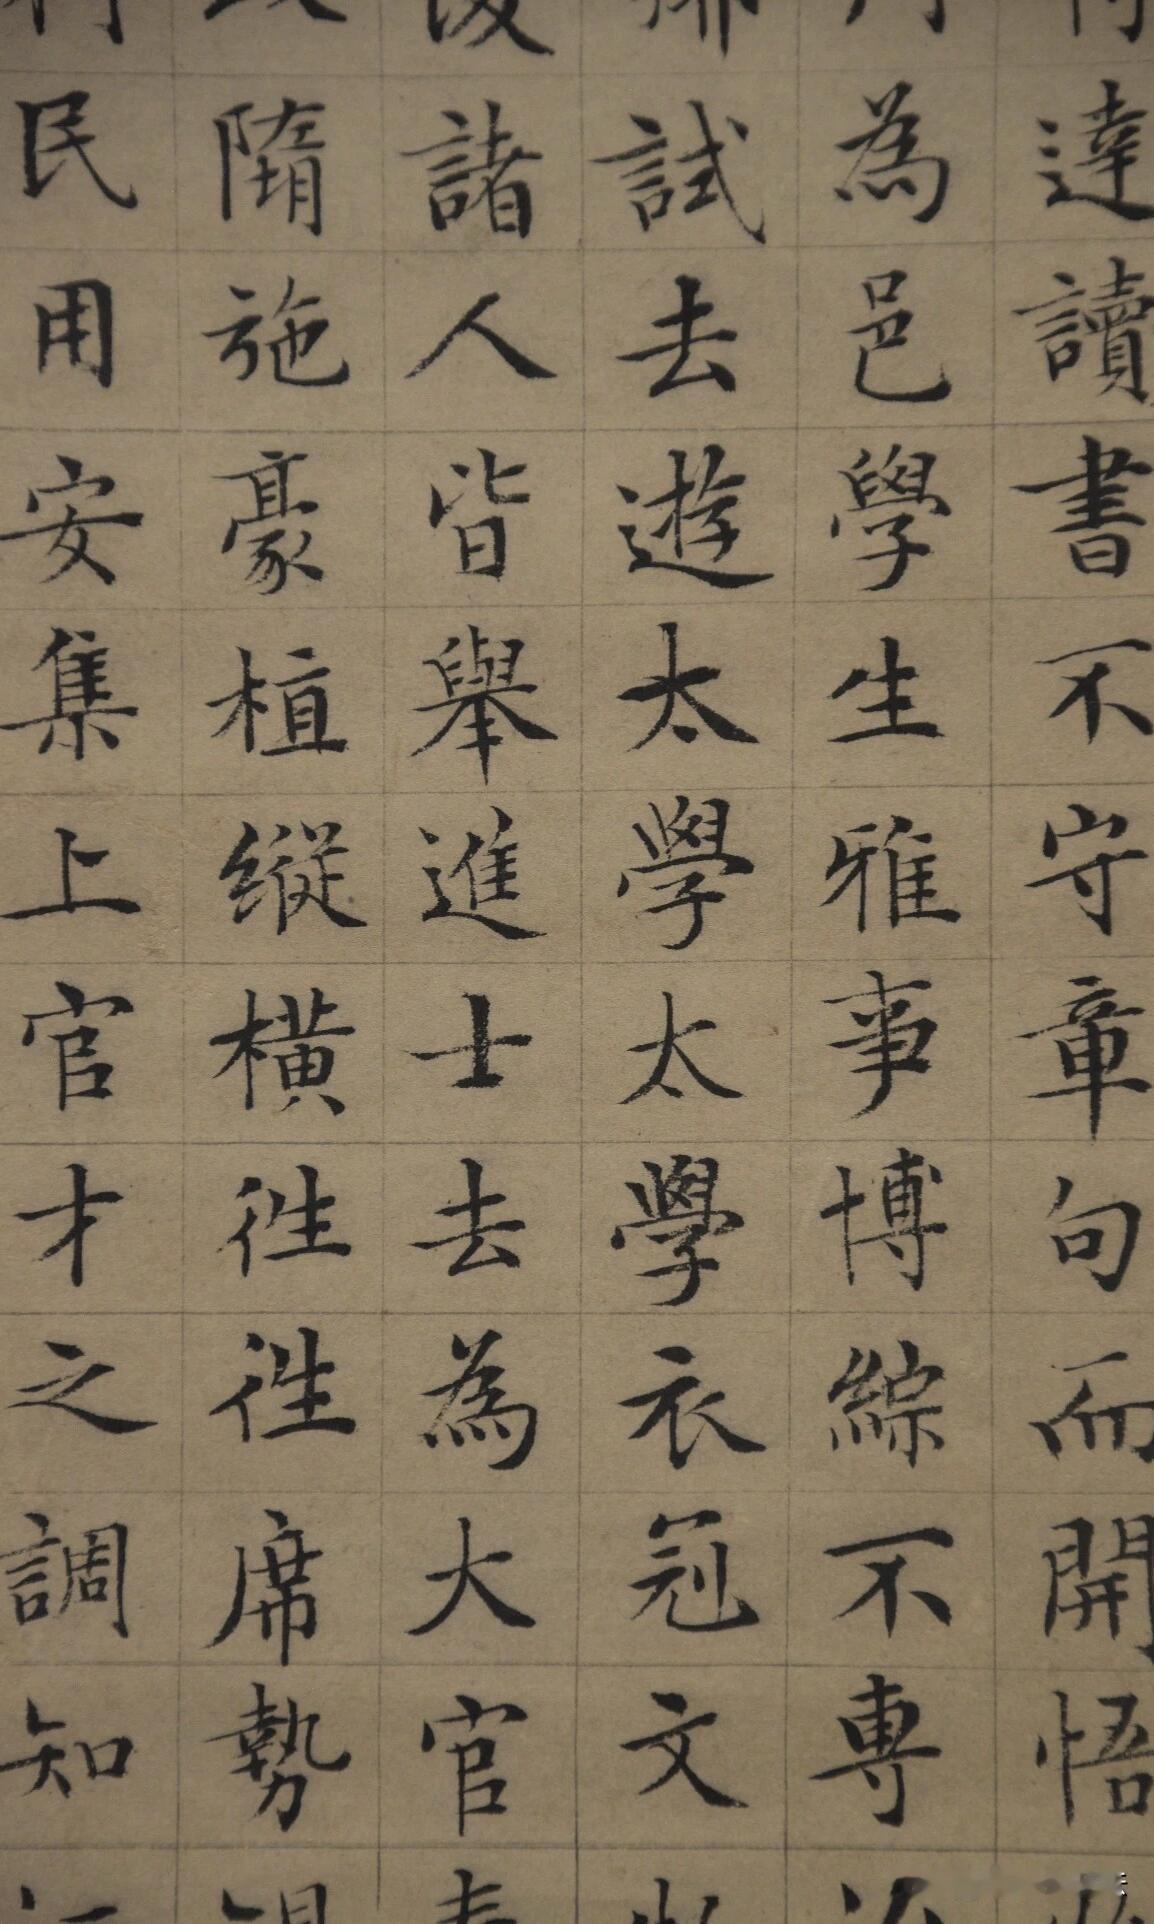 達讀書不守章句而開悟
為邑學生雅事博綜不專
試去遊太學太學衣冠文
諸人皆舉進士去為大官
隋施豪植縱橫徃徃席勢
民用安集上官才之調知